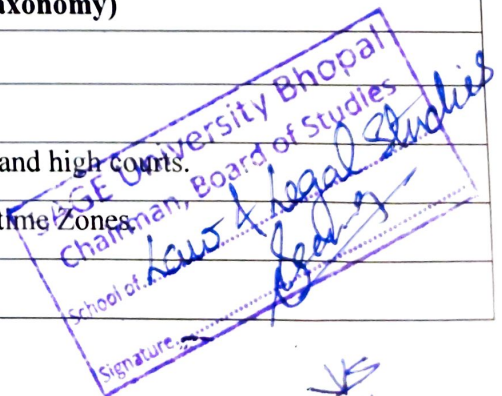 axonomy)
and high courts.
time Zones.
SAGE University Bhopal
Chairman, Board of Studies
School of Law & Legal Studies
Signature